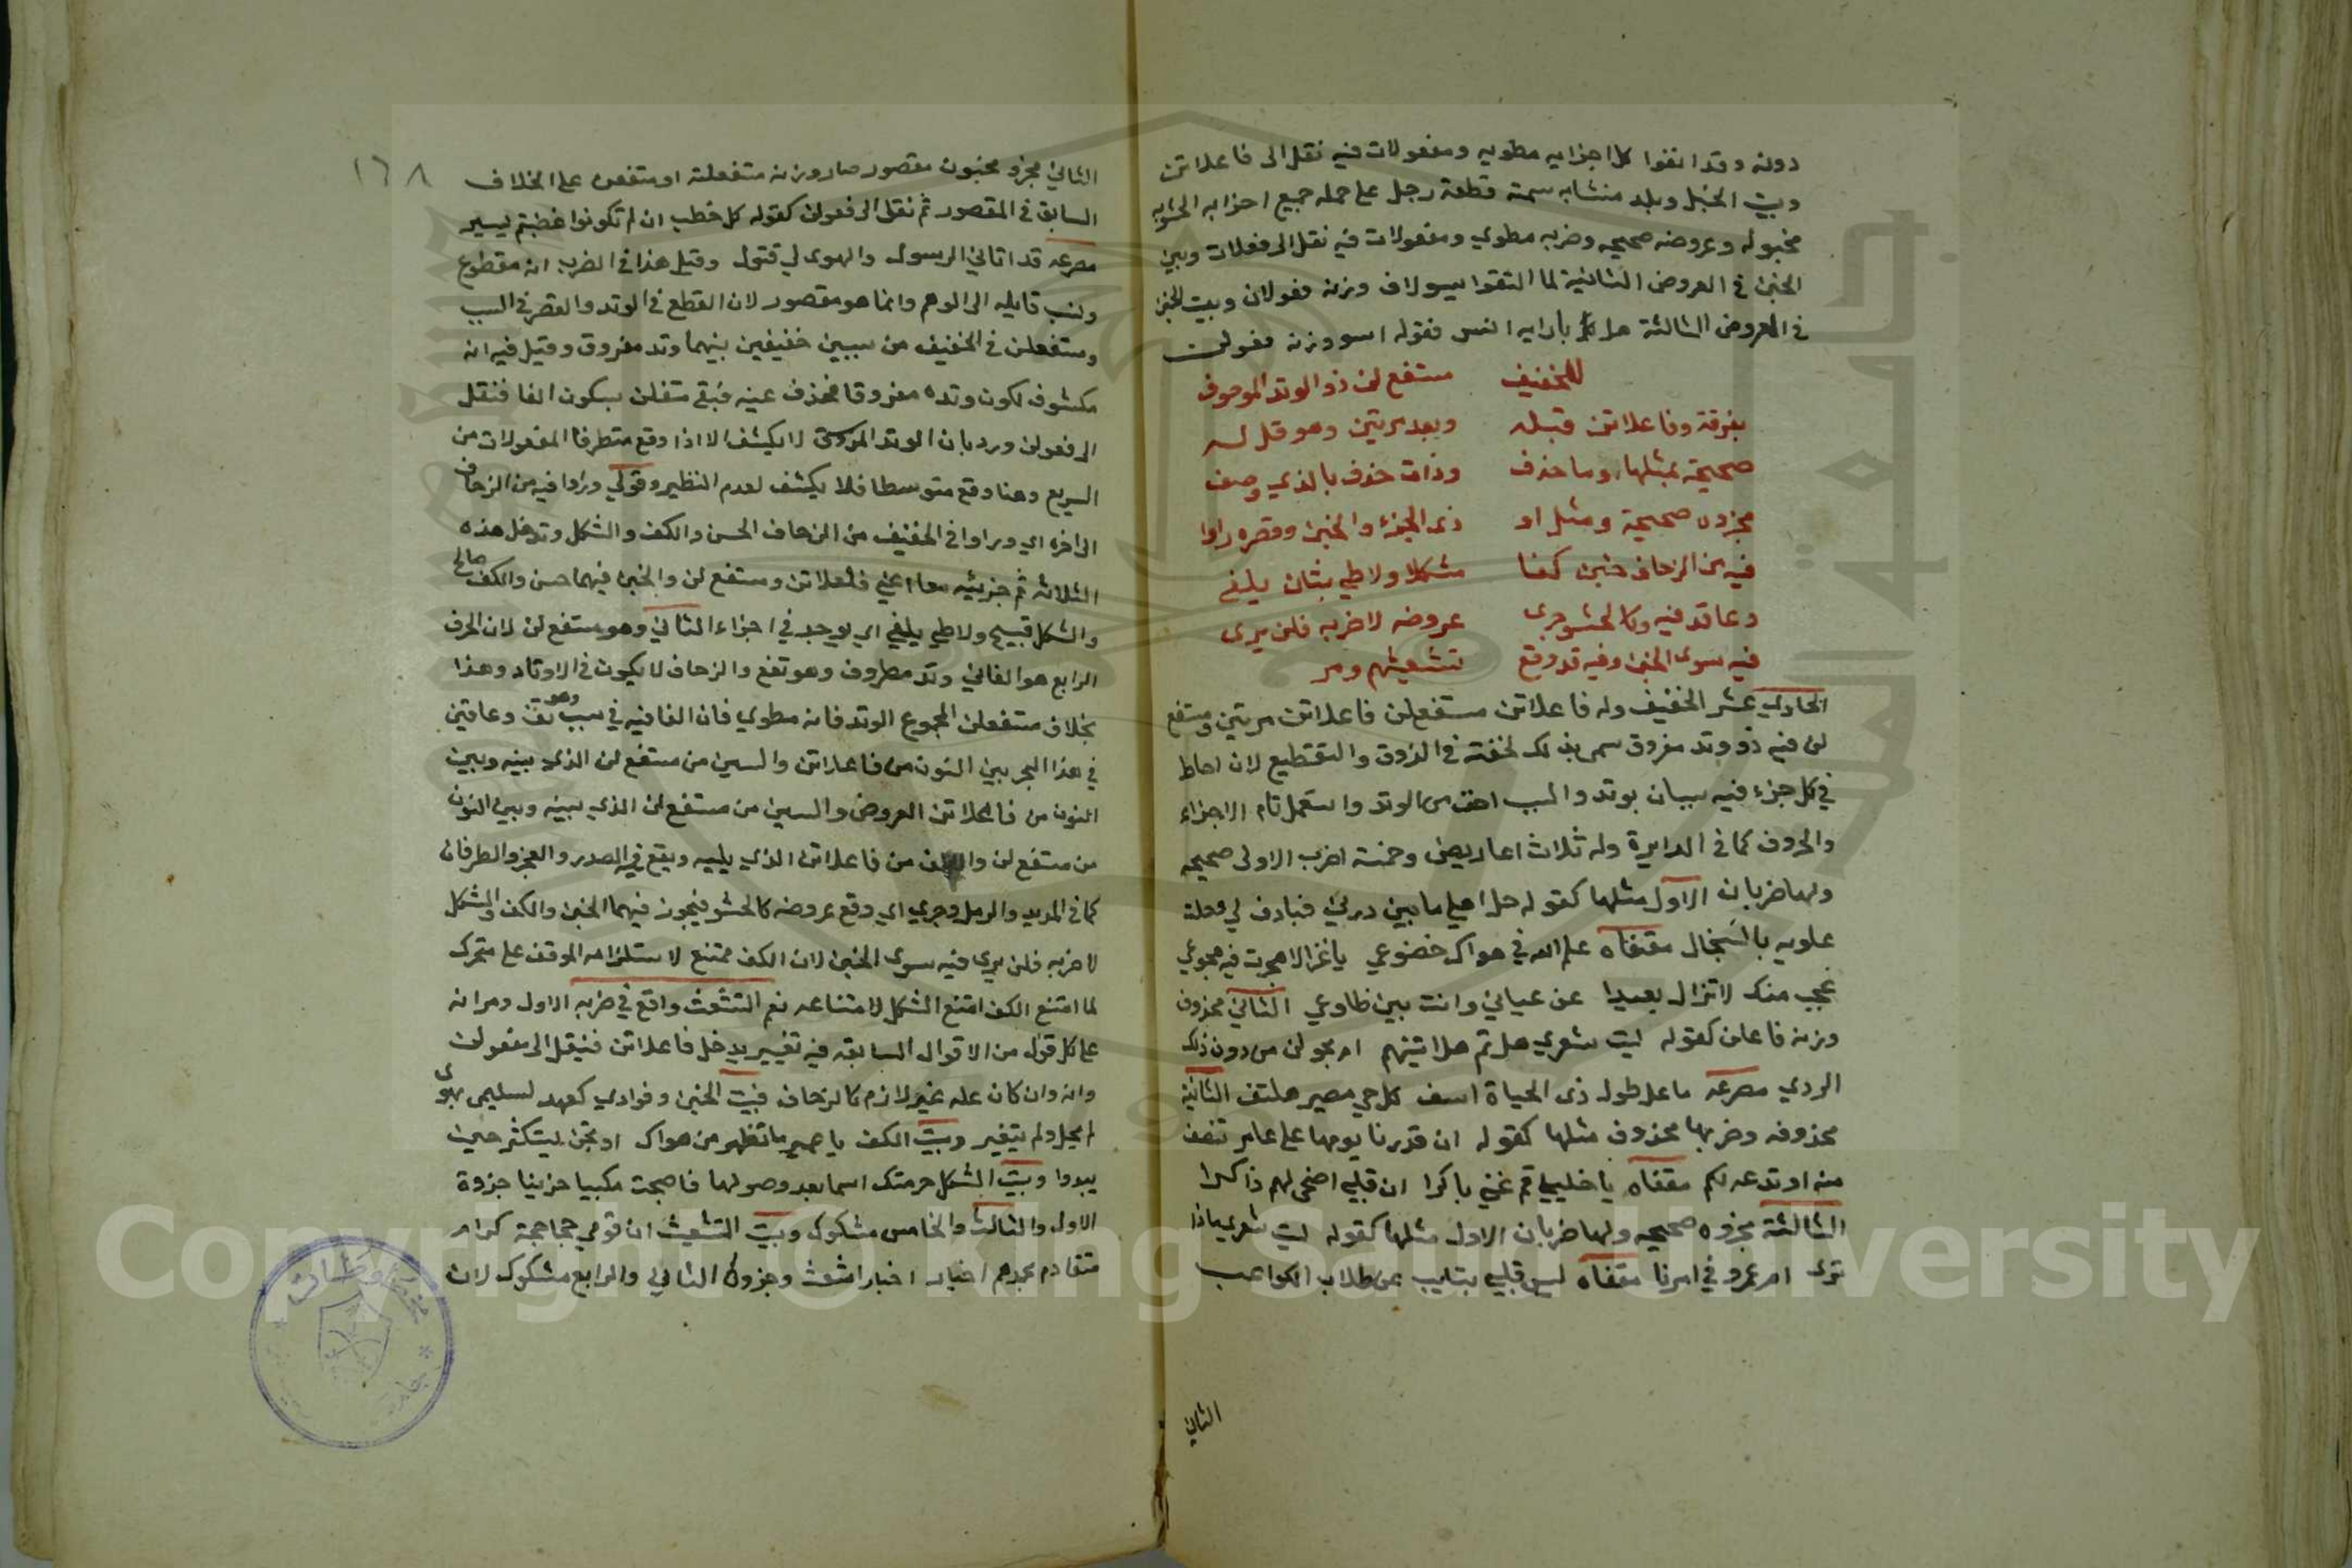 دونه وقد انفوا كل اجزايه مطويه ومفعولات فيه نقل الى فاعلاتن
وبيت الخبل وبلد متشابه سمته قطعه رجل على جمله جميع اجزايه الحشويه
مخبوله وعروضه صحيحه وضربه مطوي ومفعولات فيه نقل الى فعلات وبيت
الخبن في العروض الثانية لما التقوا بسولاف وزنه فعولان وبيت الخبن
في العروض الثالثة هل بالديار انس فقوله انسو وزنه فعولن
للخفيف مستفع لن ذو الوتد الموصوف
بفرقة وفاعلاتن قبله وبعد مرتين وهو قل له
صحيحة بمثلها وما حذف وذات حذف بالذي وصف
مجزوه صحيحة ومثل او ذى الجزء والخبن وقصره راوا
فيه من الزحاف خبن كفا مشكلا ولا طي بثان يلفى
وعاقد فيه وكالحشو جرى عروضه لا ضربه فلن يرى
فيه سوى الخبن وفيه قد وقع تشعيثهم ومر
الحادي عشر الخفيف وله فاعلاتن مستفعلن فاعلاتن مرتين ومستفع
لن فيه ذو وتد مفروق سمى بذلك لخفته في الذوق والتقطيع لان احاط
في كل جزء فيه سببان بوتد والسبب اخف من الوتد واستعمل تام الاجزاء
والحروف كما في الدايرة وله ثلاث اعاريض وخمسة اضرب الاولى صحيحه
ولها ضربان الاول مثلها كقوله حل اهلي ما بين درنى فبادو لي وحلت
علويه بالسخال مقفاه علم الله في هواك خضوعي يا غزالا هجرت فيه هجوعي
عجب منك لا تزال بعيدا عن عياني وانت بين ضلوعي الثاني محذوف
وزنه فاعلن كقوله ليت شعري هل ثم هل اتينهم ام يحولن من دون ذلك
الردي مصرعه ما على طول ذى الحياة اسف كل حي مصير هلتف الثانية
محذوفه وضربها محذوف مثلها كقوله ان قدرنا يوما على عامر ننتصف
منه او ندعه لكم مقفاه يا خليلي قم غني باكرا ان قلبي اضحى لهم ذاكرا
الثالثة مجزوه صحيحه ولها ضربان الاول مثلها كقوله ليت شعري ماذا
ترى ام عمرو في امرنا مقفاه ليس قلبي بتايب عن طلاب الكواعب
الثاني
١٦٨
الثاني مجزو مخبون مقصور صار وزنه متفعلنه او متفعن على الخلاف
السابق في المقصور ثم نقل الى فعولن كقوله كل خطب ان لم تكونوا غضبتم يسير
مصرعه قد اتاني الرسول والهوى لي قتول وقيل هذا في الضرب انه مقطوع
ونسب قايله الى الوهم وانما هو مقصور لان القطع في الوتد والقصر في السبب
ومستفعلن في الخفيف من سببين خفيفين بينهما وتد مفروق وقيل فيه انه
مكشوف لكون وتده مفروقا فحذف عينه فبقي متفلن بسكون الفا فنقل
الى فعولن ورد بان الوتد المفروق لا يكشف الا اذا وقع متطرفا كمفعولات من
السريع وهنا وقع متوسطا فلا يكشف لعدم النظير وقولي وراوا فيه من الزحاف
الى اخره اي وراوا في الخفيف من الزحاف الخبن والكف والشكل وتدخل هذه
الثلاثه ثم جزئيه معا اعني فاعلاتن ومستفع لن والخبن فيهما حسن والكف صالح
والشكل قبيح ولا طي يلفى اي يوجد في اجزاء الثاني وهو مستفع لن لان الحرف
الرابع هو الفاني وتد مفروق وهو تفع والزحاف لا يكون في الاوتاد وهذا
بخلاف مستفعلن المجموع الوتد فانه مطوي فان الفا فيه في سبب وهو تف وعاقبن
في هذا البحر بين النون من فاعلاتن والسين من مستفع لن الذي بينه وبين
النون من فاعلاتن العروض والسين من مستفع لن الذي بينه وبين النون
من مستفع لن والالف من فاعلاتن الذي يليه ويقع في الصدر والعجز والطرفان
كما في المديد والرمل وجري اي وقع عروضه كالحشو فيجوز فيهما الخبن والكف والشكل
لا ضربه فلن يرى فيه سوى الخبن لان الكف ممتنع لاستلزامه الوقف على متحرك
لما امتنع الكف امتنع الشكل لامتناعه نعم التشعيث واقع في ضربه الاول ومر انه
على كل قول من الاقوال السابقه فيه تغيير يدخل فاعلاتن فينقل الى مفعولن
وانه وان كان علة غير لازم كالزحاف فبيت الخبن وفوادي كعهده لسليمى بهوى
لم يحل ولم يتغير وبيت الكف يا عمير ما تظهر من هواك او تجن يستكثر حين
يبدوا وبيت الشكل صرمتك اسما بعد وصولها فاصبحت مكتيبا حزينا جزوه
الاول والثالث والخامس مشكوك وبيت التشعيث ان قومي جحاجحة كرام
متقادم مجدهم اخيار اخيار اشعث وجزوه الثاني والرابع مشكوك لان
Copyright © King Saud University